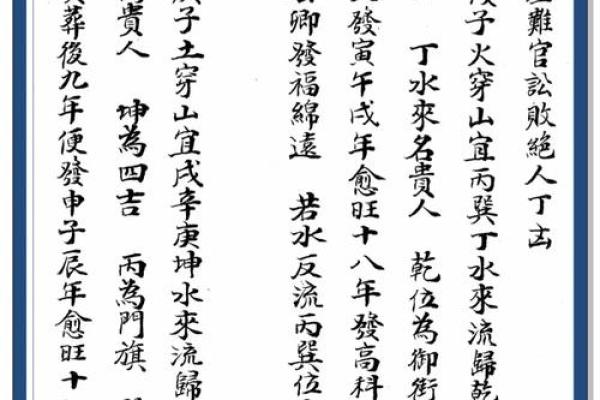 難官訟敗絕人丁凶
子火穿山宜丙巽丁水來流歸乾
丁水來名貴人 乾位為御街
發寅午戌年愈旺十八年發高科
卿發福綿遠 若水反流丙巽位
子土穿山宜戌辛庚坤水來流歸
貴人 坤為四吉 丙為門旗
葬後九年便發申子辰年愈旺十